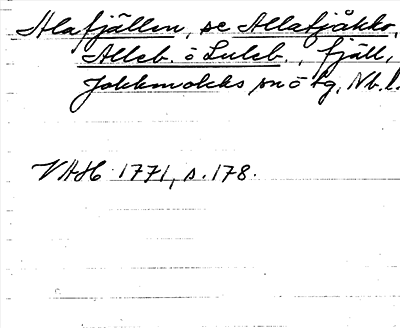 Alafjällen, se Allatjåkko,
Alleb. o Luleb., fjäll,
Jokkmokks sn o tg, Nb. l.
VAH 1771, s. 178.